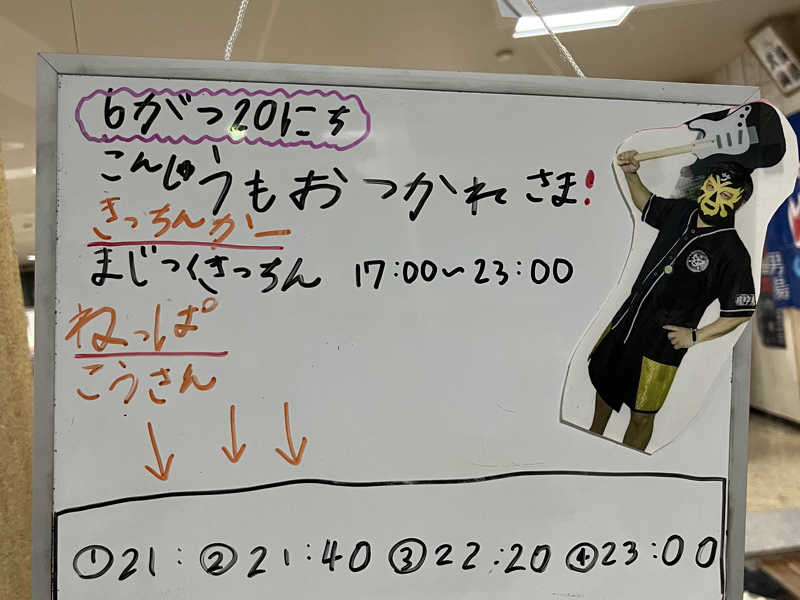 6がつ20にち
こんしゅうもおつかれさま!
きっちんかー
まじっくきっちん 17:00~23:00
ねっぱ°
こうさん
①21: ②21:40 ③22:20 ④23:00